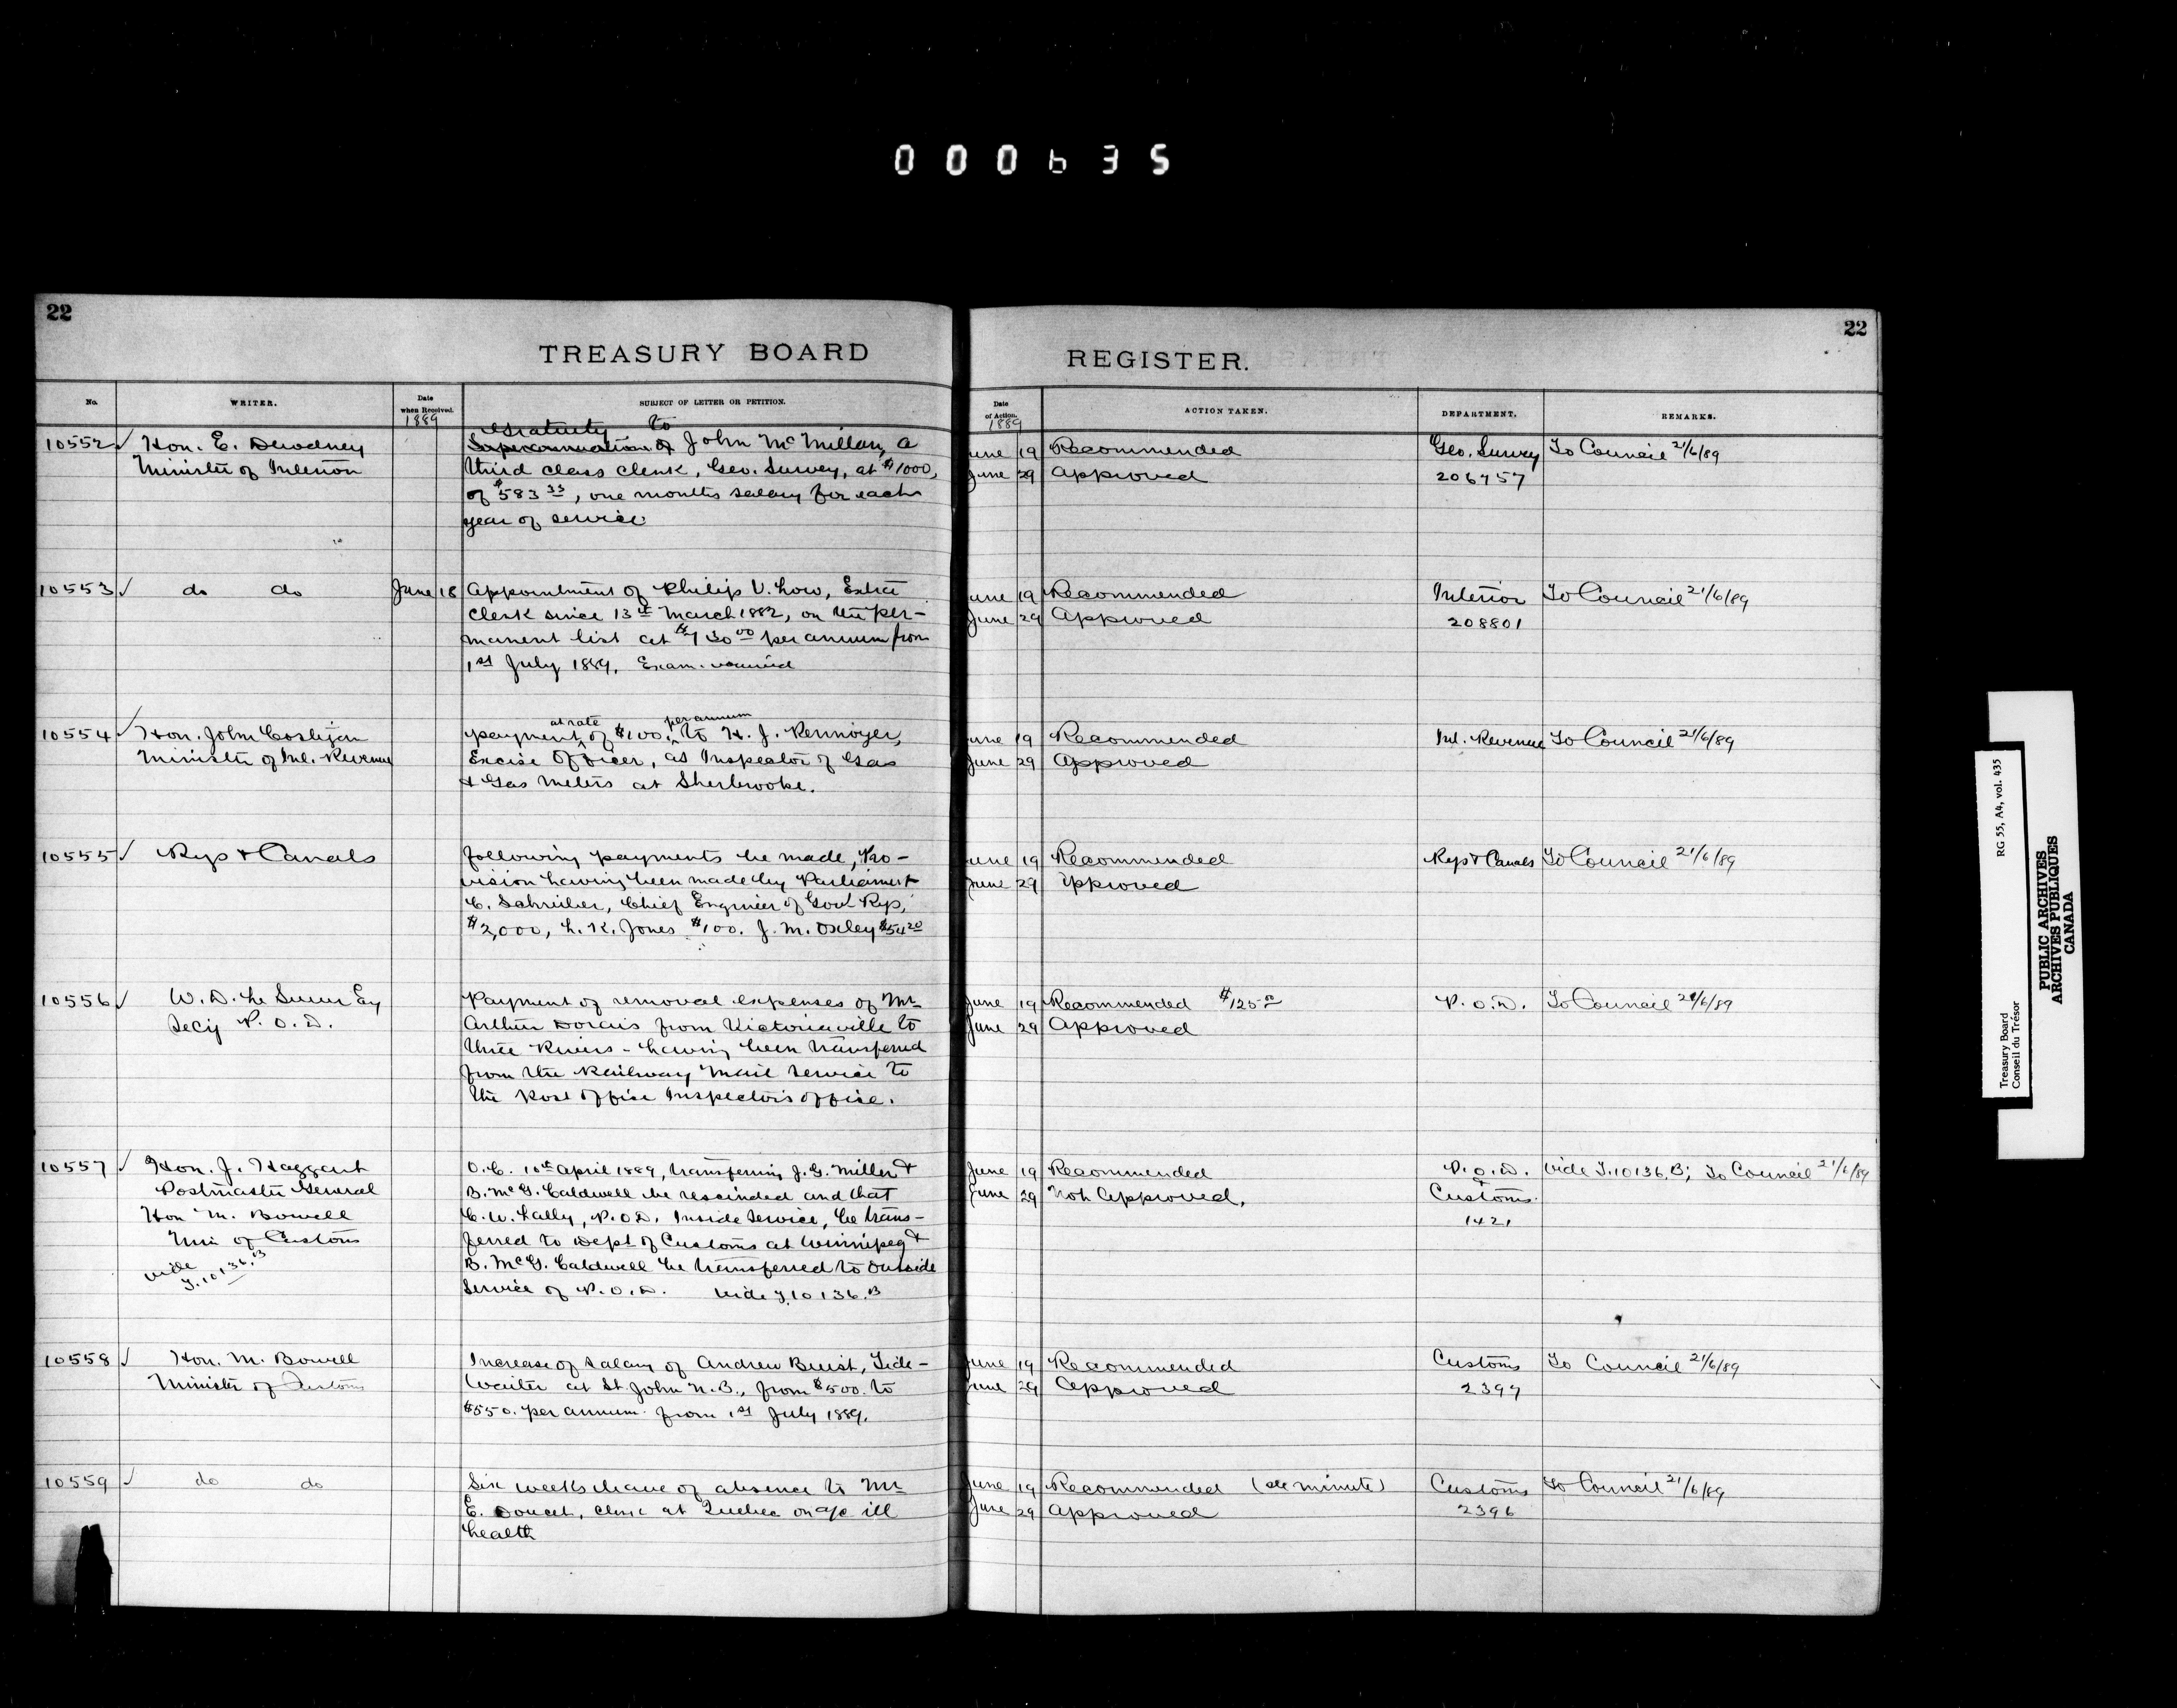 000635
22
22
TREASURY BOARD
REGISTER.
No.
WRITER.
Date when Received.
1889
SUBJECT OF LETTER OR PETITION.
Date of Action.
1889
ACTION TAKEN.
DEPARTMENT.
REMARKS.
10552 Hon. E. Dewdney
Minister of Interior
Gratuity to
Superannuation of John McMillan, a
third class clerk, Geo. Survey, at $1000,
of $583 33, one months salary for each
year of service
June 19 Recommended
June 29 Approved
Geo. Survey
206757
To Council 21/6/89
10553 do do
June 18
Appointment of Philip V. Low, Extra
Clerk since 13th March 1882, on the per-
manent list at $730 00 per annum from
1st July 1889. Exam.
June 19 Recommended
June 29 Approved
Interior
208801
To Council 21/6/89
10554 Hon. John Costigan
Minister of Inl. Revenue
at rate per annum
payment of $100. to H. J. Kennoyer,
Excise Officer, as Inspector of Gas
& Gas Meters at Sherbrooke.
June 19 Recommended
June 29 Approved
Inl. Revenue
To Council 21/6/89
10555 Rys & Canals
following payments be made, Pro-
vision having been made by Parliament
C. Schreiber, Chief Engineer of Govt Rys,
$2,000, L. K. Jones $100. J. M. Oxley $54 20
June 19 Recommended
June 29 Approved
Rys & Canals
To Council 21/6/89
10556 W. D. Le Sueur Esq
Secy P. O. D.
Payment of removal expenses of Mr
Arthur Dorais from Victoriaville to
Three Rivers - having been transferred
from the Railway Mail Service to
the Post Office Inspectors office.
June 19 Recommended $125 00
June 29 Approved
P. O. D.
To Council 21/6/89
10557 Hon. J. Haggart
Postmaster General
Hon M. Bowell
Min of Customs
vide
J. 10136. B
O.C. 10th April 1889, transferring J. G. Miller &
B. McG. Caldwell be rescinded and that
C. W. Lally, P.O.D. Inside Service, be trans-
ferred to Dept of Customs at Winnipeg &
B. McG. Caldwell be transferred to outside
Service of P.O.D. vide J. 10136. B
June 19 Recommended
June 29 Not Approved.
P. O. D.
&
Customs.
1421
vide J. 10136. B; To Council 21/6/89
10558 Hon. M. Bowell
Minister of Customs
Increase of salary of Andrew Buist, Tide-
Waiter at St. John N.B., from $500. to
$550. per annum from 1st July 1889.
June 19 Recommended
June 29 Approved
Customs
2397
To Council 21/6/89
10559 do do
Six weeks leave of absence to Mr
E. Doucet, clerk at Quebec on a/c ill
health
June 19 Recommended (see minute)
June 29 Approved
Customs
2396
To Council 21/6/89
Treasury Board
Conseil du Trésor
RG 55, A4, vol. 435
PUBLIC ARCHIVES
ARCHIVES PUBLIQUES
CANADA